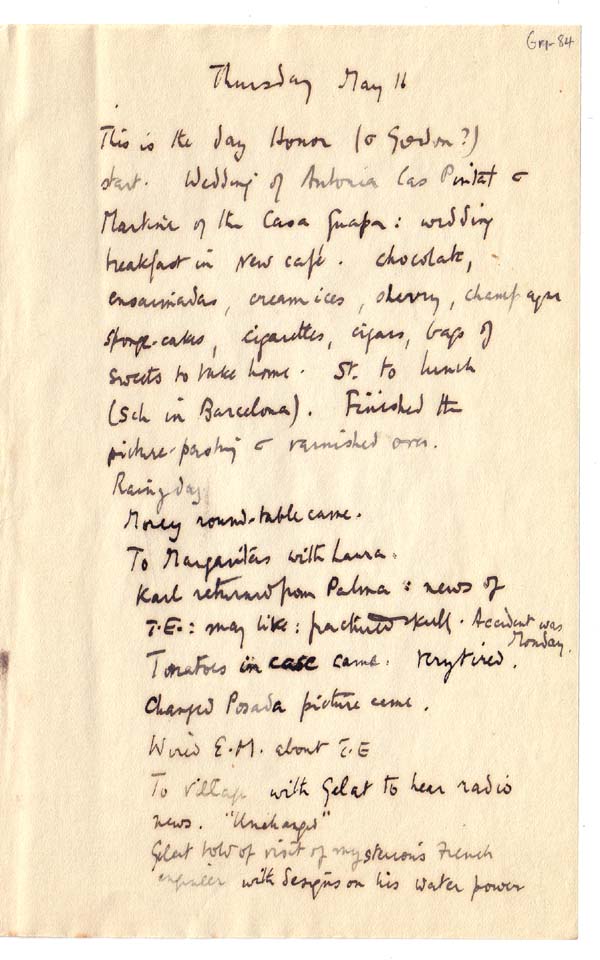 Grp-84
Thursday May 16
This is the day Honor (& Gordon?)
start. Wedding of Antonia Cas Pintat &
Martine of the Casa Guapa: wedding
breakfast in new café. chocolate,
ensaimadas, cream ices, sherry, champagne
sponge-cakes, cigarettes, cigars, bags of
sweets to take home. St. to lunch
(Sch in Barcelona). Finished the
picture-pasting & varnished over.
Rainy day
Morey round-table came.
To Margaritas with Laura.
Karl returned from Palma: news of
T.E.: may live: fractured skull. Accident was
Monday.
Tomatoes in case came. Very tired.
Changed Posada picture came.
Wired E.M. about T.E
To village with Gelat to hear radio
news. "Unchanged"
Gelat told of visit of mysterious French
engineer with designs on his water power